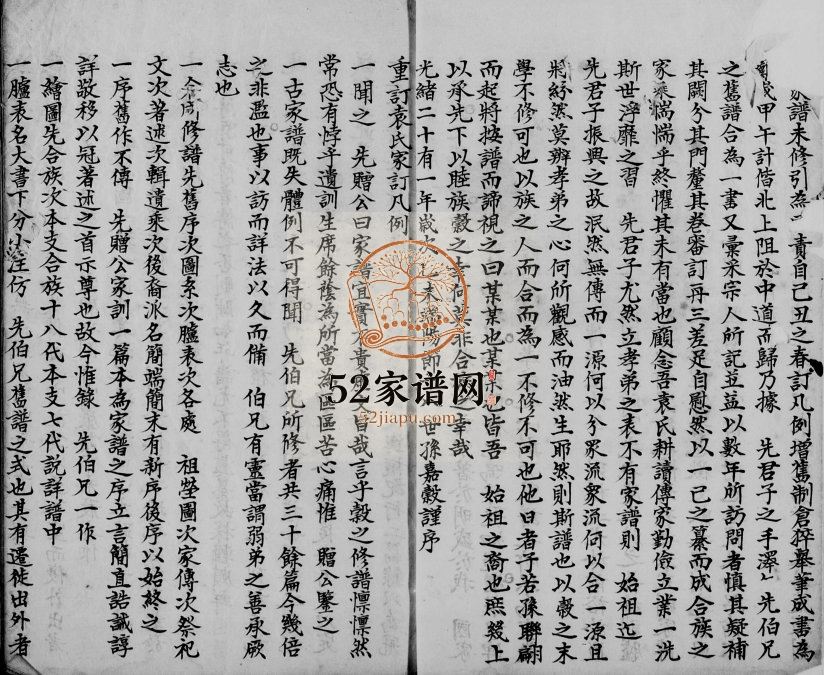 家譜未修引為己責自己丑之春訂凡例增舊制倉猝舉筆成書為
甲午計偕北上阻於中道而歸乃據 先君子之手澤 先伯兄
之舊譜合為一書又彙采宗人所記並益以數年所訪問者慎其疑補
其闕分其門釐其卷審訂再三差足自慰然以一己之纂而成合族之
家乘惴惴乎終懼其未有當也顧念吾袁氏耕讀傳家勤儉立業一洗
斯世浮靡之習 先君子尤然立孝弟之表不有家譜則 始祖迄
先君子振興之故泯然無傳而一源何以分眾流眾流何以合一源且
將紛然莫辨孝弟之心何所觀感而油然生耶然則斯譜也以穀之末
學不修可也以族之人而合而為一不修不可也他日者子若孫聯翩
而起將按譜而諦視之曰某某也某某也皆吾 始祖之裔也庶幾上
以承先下以睦族穀之幸何莫非合族之幸哉
光緒二十有一年歲次乙未 世孫嘉穀謹序
重訂袁氏家訂凡例
一聞之 先贈公曰家譜宜實不貴 旨哉言乎穀之修譜懍懍然
常恐有悖乎遺訓生席餘蔭為所當為區區苦心痛惟 贈公鑒之
一古家譜既失體例不可得聞 先伯兄所修者共三十餘篇今幾倍
之非濫也事以訪而詳法以久而備 伯兄有靈當謂弱弟之善承厥
志也
一余所修譜先舊序次圖系次臚表次各處 祖塋圖次家傳次祭祀
文次著述次輯遺乘次後裔派名簡端簡末有新序後序以始終之
一序舊作不傳 先贈公家訓一篇本為家譜之序立言簡直誥誡諄
詳敬移以冠著述之首示尊也故今惟錄 先伯兄一作
一繪圖先合族次本支合族十八代本支七代說詳譜中
一臚表名大書下分小注仿 先伯兄舊譜之式也其有遷徙出外者
52家谱网
52jiapu.com